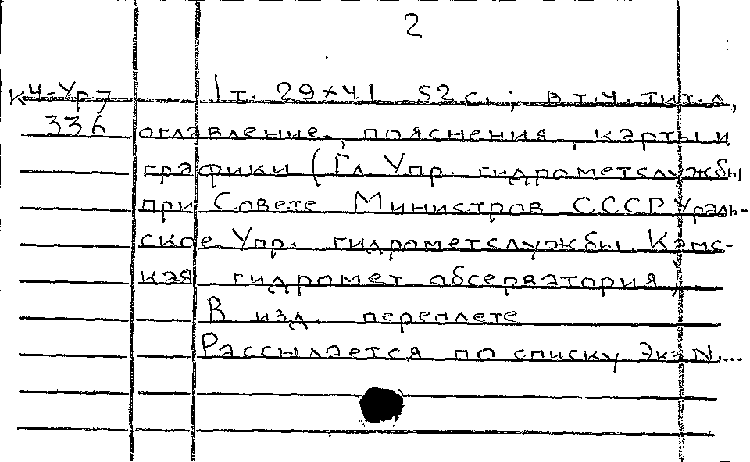 2
К4-Ур7 1 т. 29×41 52 с.; в т.ч. тит. л,
336 оглавление, пояснения, карты и
графики (Гл Упр. гидрометслужбы
при Совете Министров СССР Ураль-
ское Упр. гидрометслужбы Камс-
кая гидромет обсерватория)
В изд. переплете
Рассылается по списку Экз N...